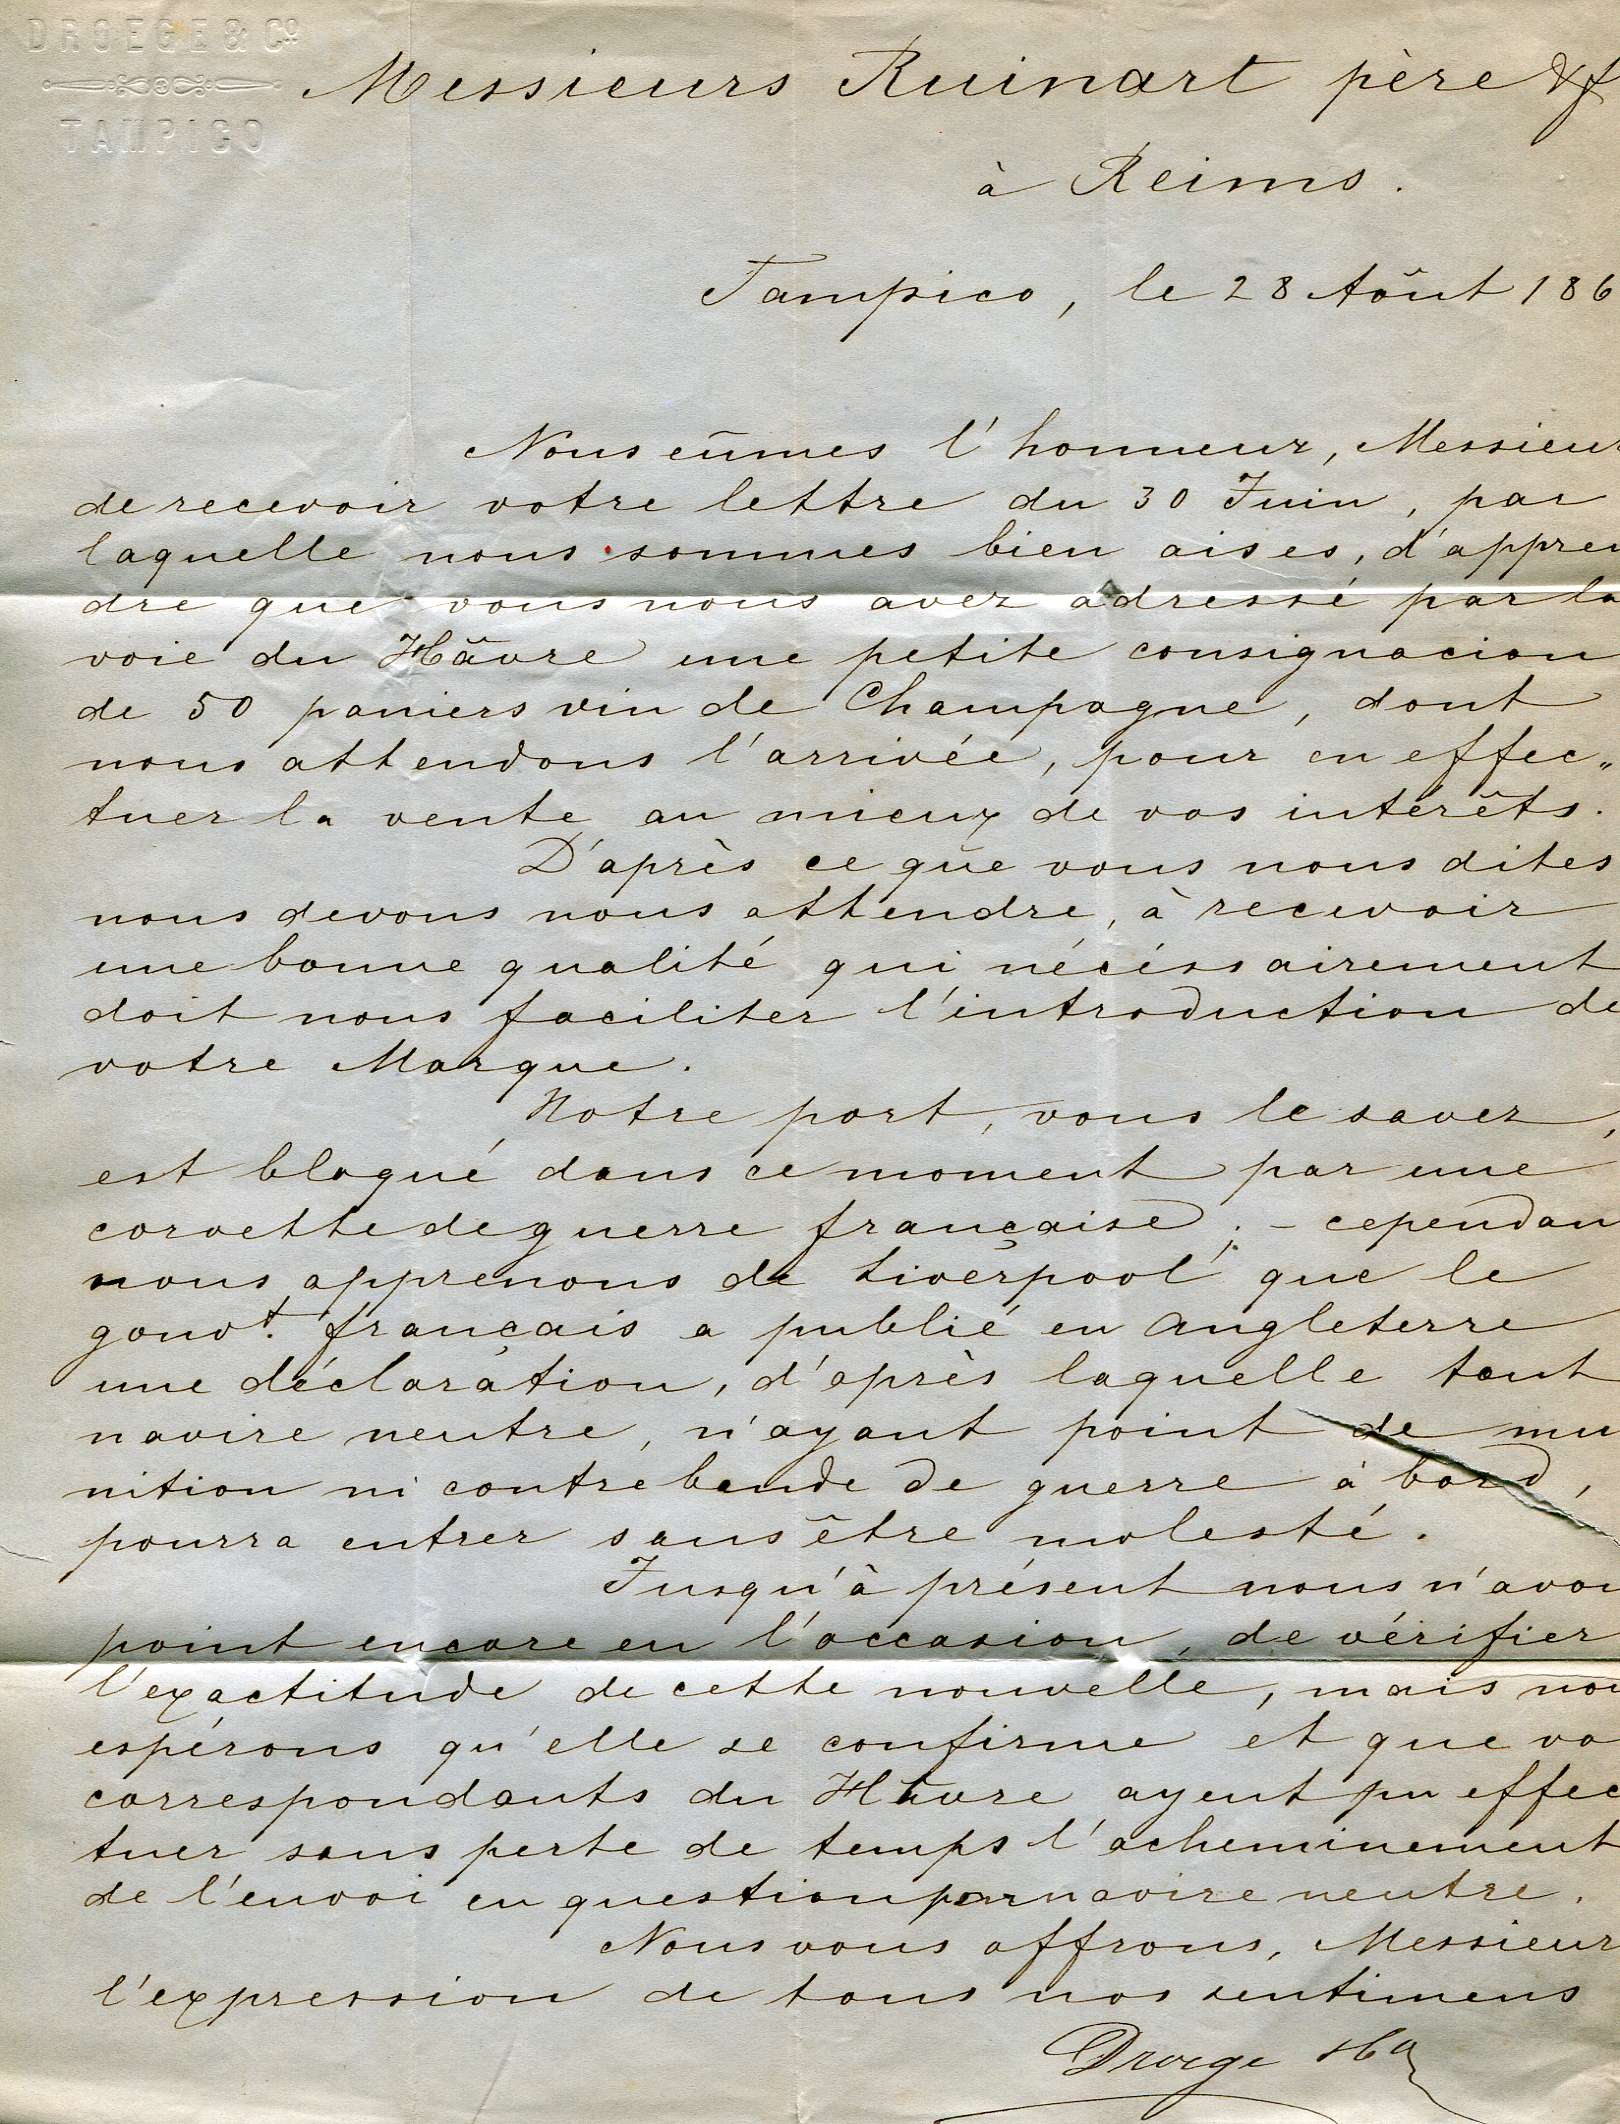 DROEGE & Cº
TAMPICO
Messieurs Ruinart père & f
à Reims.
Tampico, le 28 Aôut 186
Nous eûmes l'honneur, Messieur
de recevoir votre lettre du 30 Juin, par
laquelle nous sommes bien aises, d'appren
dre que vous nous avez adressé par la
voie du Hâvre une petite consignacion
de 50 paniers vin de Champagne, dont
nous attendons l'arrivée, pour en effec„
tuer la vente au mieux de vos intérêts.
D'après ce que vous nous dites
nous devons nous attendre, à recevoir
une bonne qualité qui nécéssairement
doit nous faciliter l'introduction de
votre Marque.
Notre port, vous le savez,
est bloqué dans ce moment par une
corvette de guerre française; – cependan
nous apprenons de Liverpool que le
gouvt. français a publié en Angleterre
une déclaration, d'après laquelle tout
navire neutre, n'ayant point de mu
nition ni contrebande de guerre à bord,
pourra entrer sans être molesté.
Jusqu'à présent nous n'avon
point encore eu l'occasion, de vérifier
l'exactitude de cette nouvelle, mais nou
espérons qu'elle se confirme et que vo
correspondants du Hâvre ayent pu effec
tuer sans perte de temps l'acheminement
de l'envoi en question par navire neutre.
Nous vous offrons, Messieur
l'expression de tous nos sentimens
Droege &Co